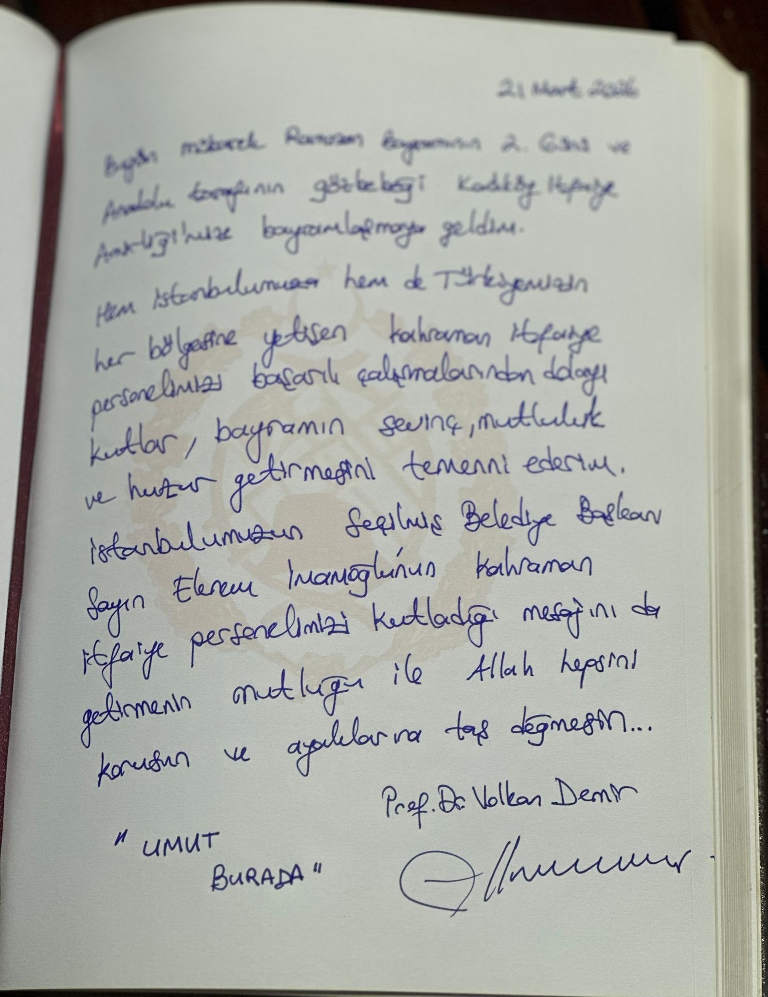 21 Mart 2026
Bugün mübarek Ramazan bayramının 2. Günü ve
Anadolu tarafının gözbebeği Kadıköy İtfaiye
Amirliği'mize bayramlaşmaya geldim.
Hem İstanbulumuzun hem de Türkiyemizin
her bölgesine yetişen kahraman itfaiye
personelimizi başarılı çalışmalarından dolayı
kutlar, bayramın sevinç, mutluluk
ve huzur getirmesini temenni ederim.
İstanbulumuzun Seçilmiş Belediye Başkanı
Sayın Ekrem İmamoğlu'nun kahraman
itfaiye personelimizi kutladığı mesajını da
getirmenin mutluğu ile Allah hepsini
korusun ve ayaklarına taş değmesin...
Prof. Dr. Volkan Demir
" UMUT
BURADA "